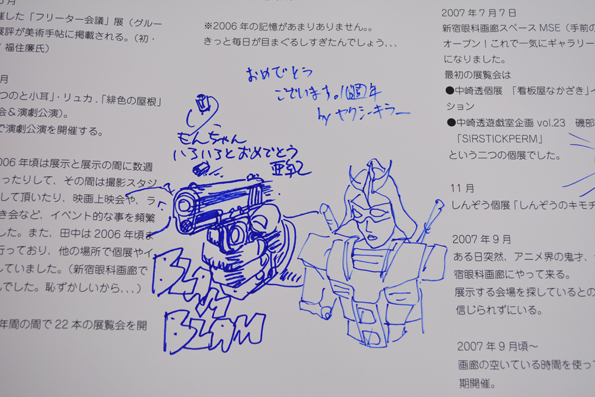 催した「フリーター会議」展（グルー
展評が美術手帖に掲載される。（初・
福住廉氏）
月
つのと小耳」・リュカ.「緋色の屋根」
会＆演劇公演）。
で演劇公演を開催する。
006年頃は展示と展示の間に数週
ったりして、その間は撮影スタジ
して頂いたり、映画上映会や、ラ
き会など、イベント的な事を頻繁
した。また、田中は2006年頃ま
行っており、他の場所で個展やイ
していました。（新宿眼科画廊で
んでした。恥ずかしいから...）
年間の間で22本の展覧会を開
※2006年の記憶があまりありません。。
きっと毎日が目まぐるしすぎたんでしょう...
おめでとう
ございます。10周年
by ヤクシーキラー
もんちゃん
いろいろとおめでとう
BLAM
BLAM
2007年7月7日
新宿眼科画廊スペースMSE（手前の
オープン！これで一気にギャラリー
になりました。
最初の展覧会は
●中崎透個展 「看板屋なかざき」イ
ション
●中崎透遊戯室企画 vol.23 磯部
「SIRSTICKPERM」
という二つの個展でした。
11月
しんぞう個展「しんぞうのキモチ
2007年9月
ある日突然、アニメ界の鬼才、
宿眼科画廊にやって来る。
展示する会場を探しているとの
信じられずにいる。
2007年9月頃〜
画廊の空いている時間を使っ
期開催。